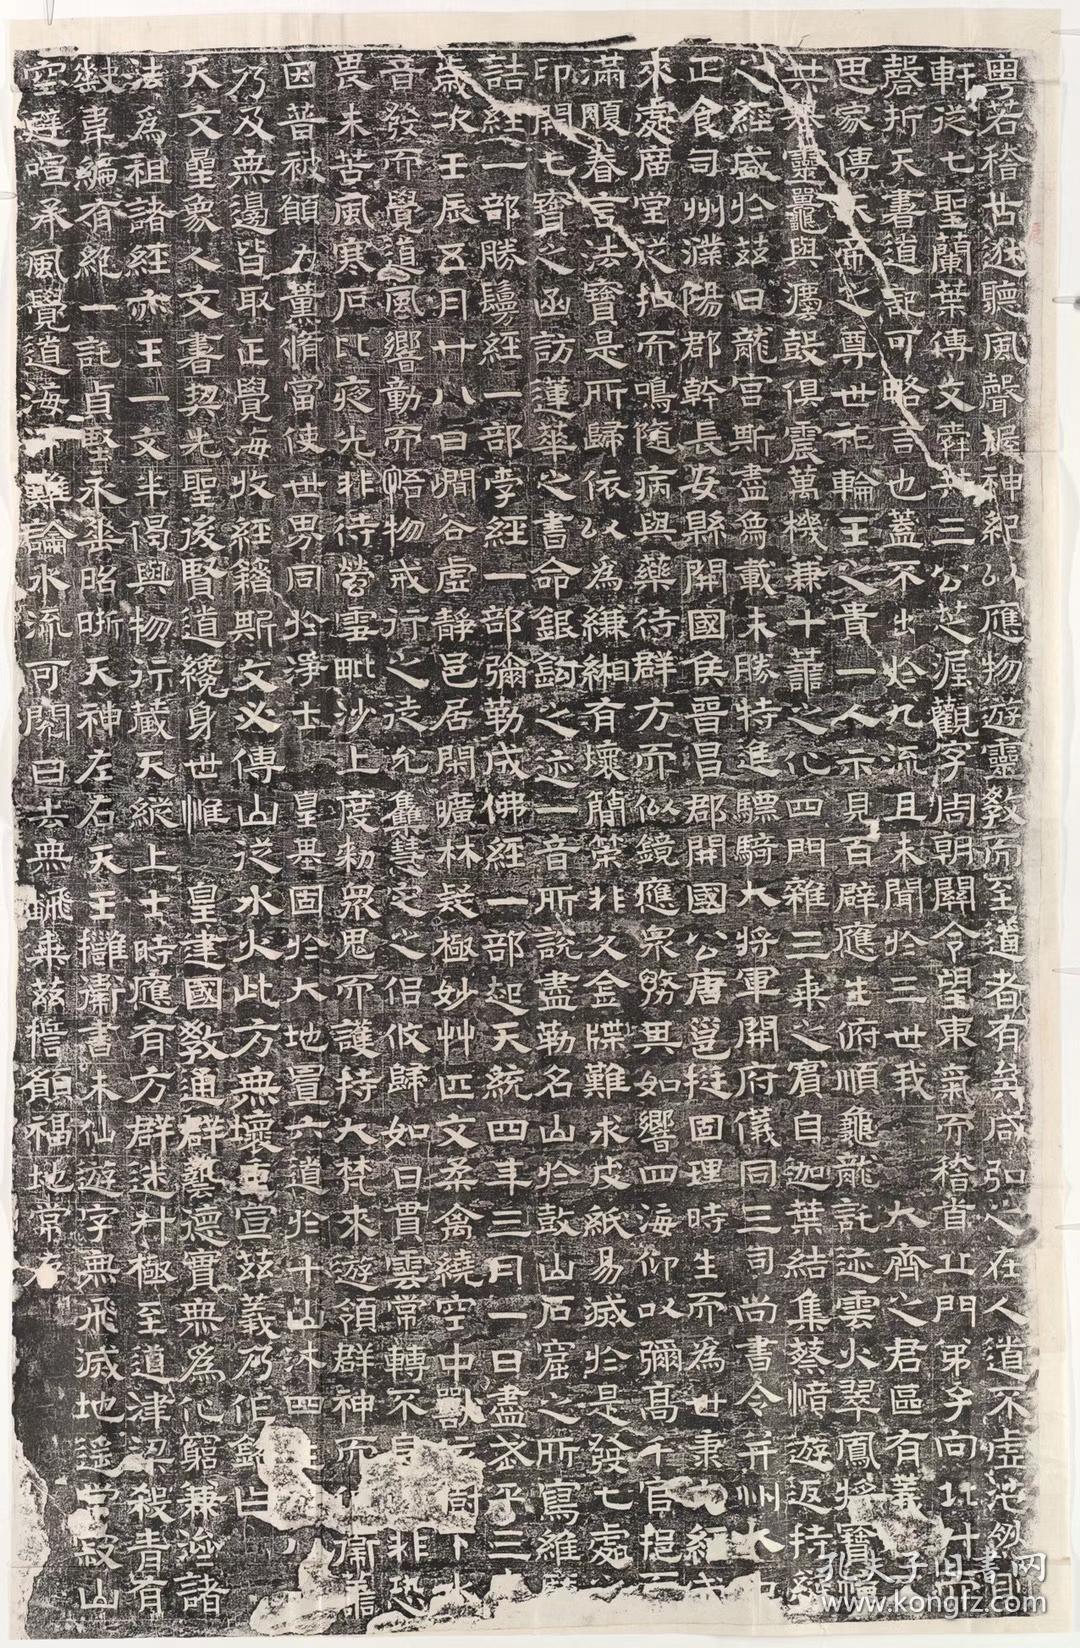 粵若稽古逖聽風聲握神紀以應物遊靈教而至道者有矣咸弘之在人道不虛洎然且
軒從七聖蘭葉傳文舜三公芝渥觀字周朝關令望東氣而稽首立門弟子向北斗而
磬折天書道記可略言也蓋不出於九流且未聞於三世我大齊之君區有義
思家傳天帝之尊世祚輪王之貴一人示見百辟應生俯順龜龍託迹雲火翠鳳將寶幢
共靈鼉與鷹鼓俱震萬機兼十善之心四門雜三乘之賓自迦葉結集蔡愔遊返持綖
之經盛於茲日龍宮斯盡鳥載未勝特進驃騎大將軍開府儀同三司尚書令并州大中
正食司州濮陽郡幹長安縣開國侯晉昌郡開國公唐邕挺固理時生而為世秉
來處廣堂求扣而鳴隨病與藥待群方而似鏡應衆務其如響四海仰以彌高千官挹而
滿願眷言法寶是所歸依以為縑緗有壞簡策非久金牒難求皮紙易滅於是發七處
印開七寶之函訪蓮華之書命銀鈎之迹一音所說盡勒名山於鼓山石窟之所寫維摩
詰經一部勝鬘經一部孛經一部彌勒成佛經一部起天統四年三月一日盡武平三
歲次壬辰五月廿八日㵎谷虛靜邑居閑曠林疑極妙艸匹文柔禽繞空中獸依樹下水
音發而覺道風響動而悟物戒行之徒允集慧定之侶攸歸如日貫雲常轉不息非恐
畏未苦風寒石比夜光非待螢雪毗沙上度勑衆鬼而護持大梵來遊領群神而侍衛諸
因普被願力薰脩當使世男同於淨土皇基固於大地置六道於十山沐四
乃及無邊皆取正覺海收經籍斯文必傳山從水火此方無壞重宣茲義乃作銘曰
天文星象人文書契先聖後賢道纔身世惟皇建國教通群藝德實無為化窮兼濟諸
法為祖諸經亦王一文半偈與物行藏天縱上士時應有方群迷升極至道津梁殺青有
缺韋編有絕一託貞堅永垂昭晰天神左右天王擁衛書未仙遊字無飛滅地遙空寂山
空避喧承風覺道海難論水流可閱日去無翻乘茲誓願福地常存
孔夫子旧书网
www.kongfz.com